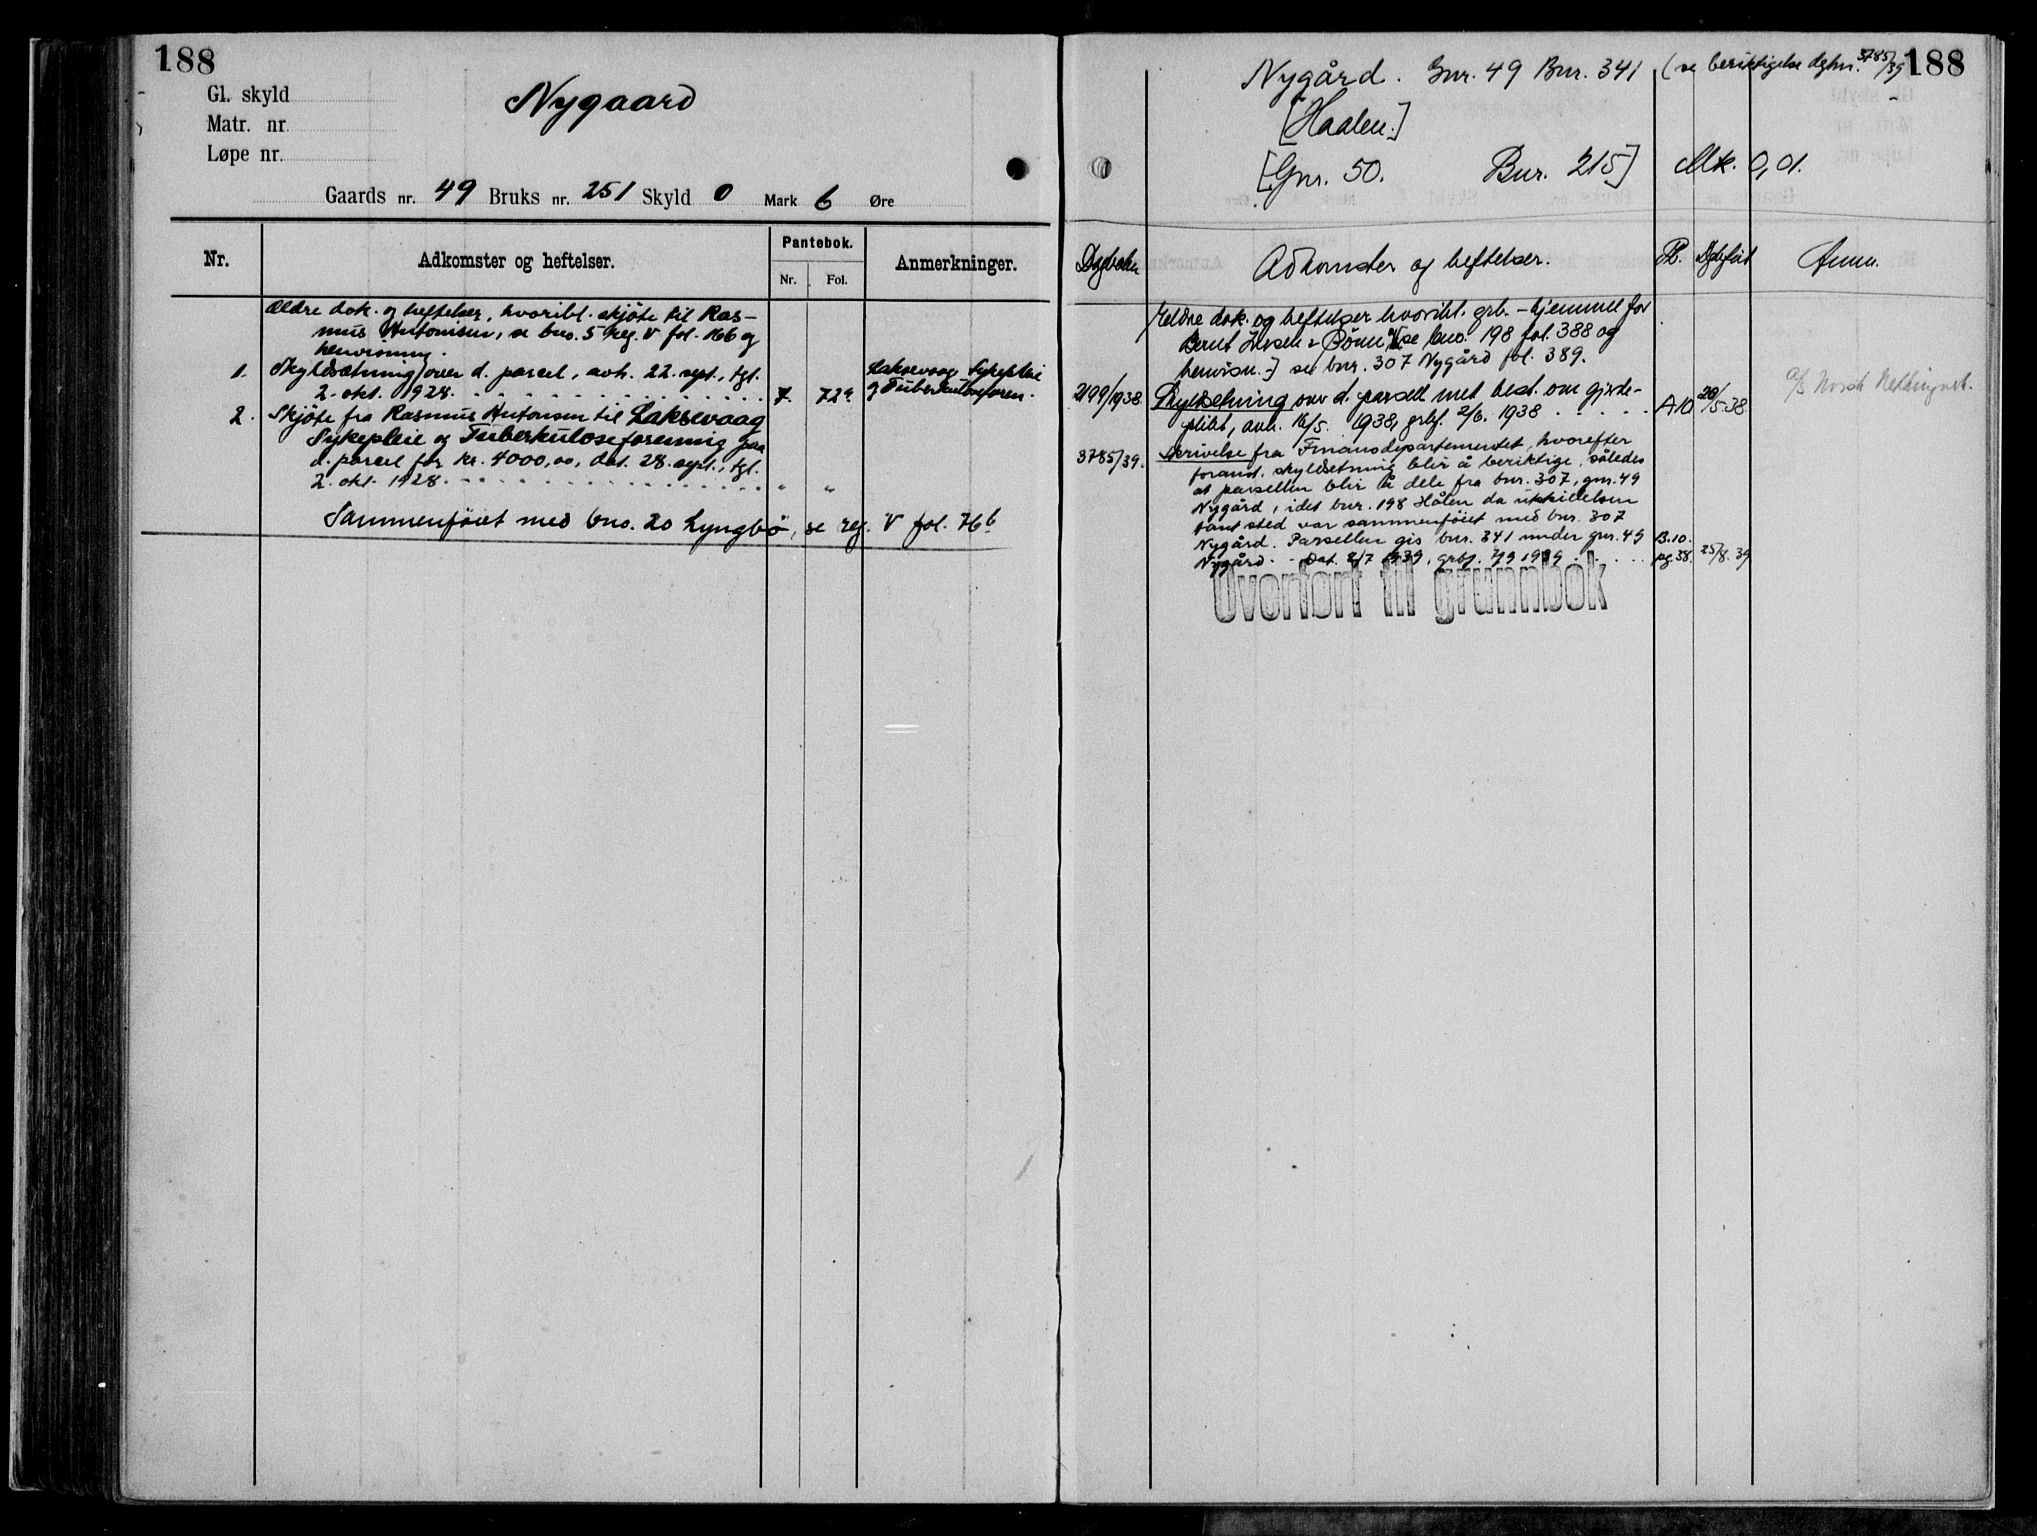 188
Gl. skyld
Matr. nr.
Løpe nr.
Nygaard
Gaards nr. 49 Bruks nr. 251 Skyld 0 Mark 6 Øre
Nr.
Adkomster og heftelser.
Pantebok.
Nr.
Fol.
Anmerkninger.
Ældre dok. og heftelser, hvoribl. skjøte til Ras-
mus Antonisen, se bno. 5 reg. V fol. 166 og
henvisning.
1. Skyldsætning over d. parcel, avh. 22. sept., tgl.
2. okt. 1928. 7. 72a
Laksevaag Sykepleie
og Tuberkuloseforen.
2. Skjøte fra Rasmus Antonisen til Laksevaag
Sykepleie og Tuberkuloseforening paa
d. parcel for kr. 4000,00, dat. 28. sept., tgl.
2. okt. 1928. " "
Sammenføiet med bno. 20 Lyngbø, se reg. V fol. 76b
188
Nygård. Gnr. 49 Bnr. 341 (se berigtigelse dgbnr. 3785/39
[Haalen.]
[Gnr. 50. Bnr. 215] Mk. 0,01.
Dagboknr
Adkomster og heftelser.
Pb. Dgbført Anm.
Meldre dok. og heftelser hvoribl. grb.-hjemmel for
Bernt se bno. 198 fol. 388 og
henvisn.-] se bnr. 307 Nygård fol. 389.
2199/1938. Skyldsetning over d. parsell med best. om gjerde-
plikt, avh. 16/5. 1938, grbf. 2/6. 1938 A10 28/5-38
a/s Norsk
3785/39. Skrivelse fra Finansdepartementet, hvorefter
foranst. skyldsetning blir å beriktige, således
at parsellen blir å dele fra bnr. 307, gnr. 49
Nygård, idet bnr. 198 Hålen da utskillelsen
fant sted var sammenføiet med bnr. 307
Nygård. Parsellen gis bnr. 341 under gnr. 49 B.10.
Nygård. - Dat. 8/7 1939, grbf. 7/9 1939 pg. 38. 25/8. 39
Overført til grunnbok